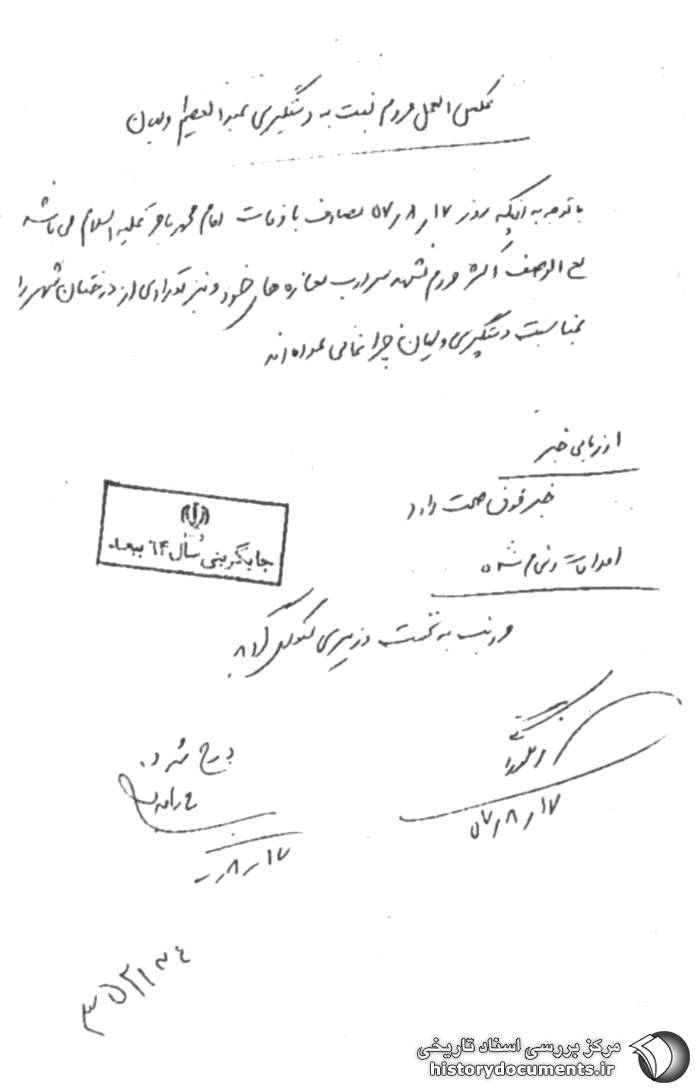 عکس العمل مردم نسبت به دستگیری عبدالعظیم ولیان
با توجه به اینکه روز ۱۷ر۸ر۵۷ مصادف با وفات امام محمد باقر علیه السلام می باشد
مع الوصف اکثر مردم مشهد سردرب مغازه های خود و نیز تعدادی از درختان شهر را
بمناسبت دستگیری ولیان چراغانی نموده اند
ارزیابی خبر
خبر فوق صحت دارد
اقدامات انجام شده
مراتب به نخست وزیری
جایگزینی سال ۶۴ ببعد
درج شود.
۱۷ر۸ر۵۷
۱۷ر۸ر
۳۵۲۱۳۴
مرکز بررسی اسناد تاریخی
historydocuments.ir